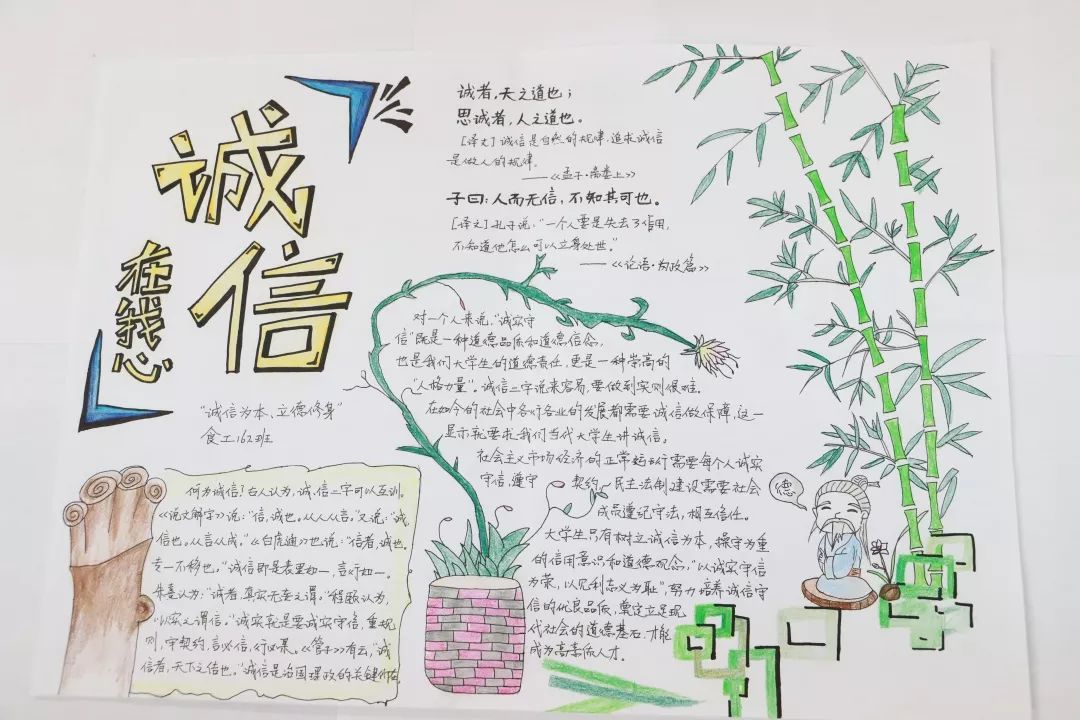 诚信
在我心
"诚信为本、立德修身"
食工162班
诚者，天之道也；
思诚者，人之道也。
[译文]诚信是自然的规律，追求诚信
是做人的规律。
——《孟子·离娄上》
子曰：人而无信，不知其可也。
[译文]孔子说："一个人要是失去了信用，
不知道他怎么可以立身处世。"
——《论语·为政篇》
对一个人来说，"诚实守
信"既是一种道德品质和道德信念，
也是我们大学生的道德责任，更是一种崇高的
"人格力量"。诚信二字说来容易，要做到实则很难。
在如今的社会中各行各业的发展都需要诚信做保障，这一
显示就要求我们当代大学生讲诚信。
社会主义市场经济的正常运行需要每个人诚实
守信，遵守契约，民主法制建设需要社会
成员遵纪守法，相互信任。
大学生只有树立诚信为本，操守为重
的信用意识和道德观念，"以诚实守信
为荣，以见利忘义为耻"，努力培养诚信守
信的优良品质，奠定立足现
代社会的道德基石，才能
成为高素质人才。
德
何为诚信？古人认为，诚、信二字可以互训。
《说文解字》说："信，诚也。从人从言。"又说："诚，
信也。从言从成。"《白虎通》也说："信者，诚也。
专一不移也。"诚信即是表里如一，言行如一。
朱熹认为："诚者，真实无妄之谓。"程颐认为，
"以实之谓信。"诚实就是要诚实守信，重规
则，守契约，言必信，行必果。《管子》有云，"诚
信者，天下之结也。"诚信是治国理政的关键所在